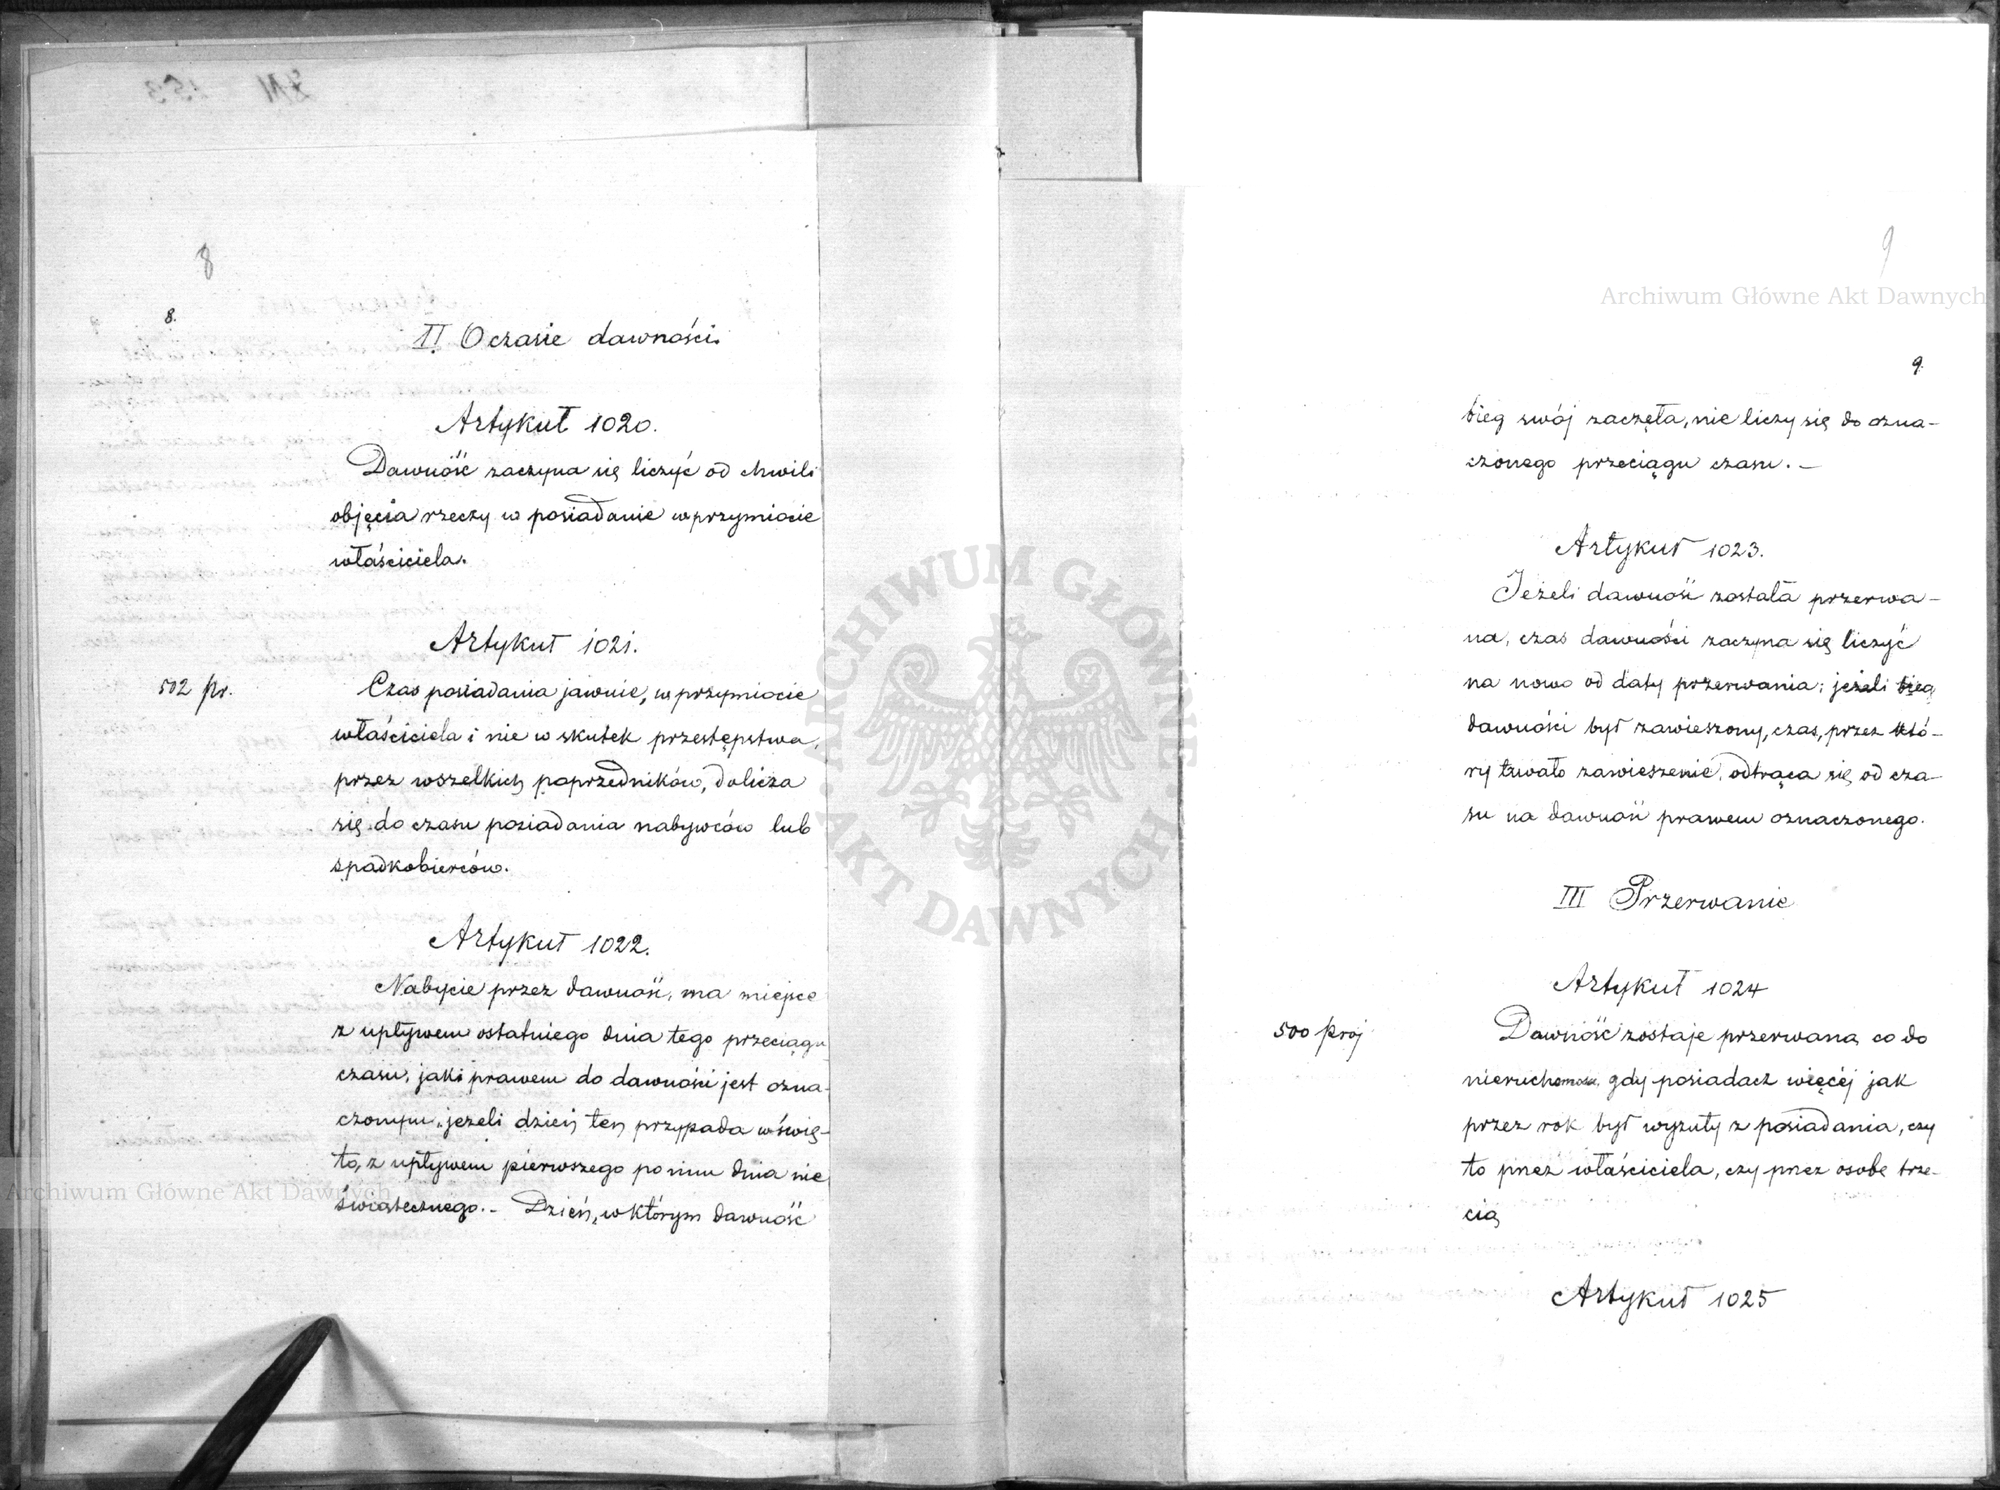 8
8.
II O czasie dawności.
Artykuł 1020.
Dawność zaczyna się liczyć od chwili
objęcia rzeczy w posiadanie w przymiocie
właściciela.
Artykuł 1021.
502 pr.
Czas posiadania jawnie, w przymiocie
właściciela i nie w skutek przestępstwa,
przez wszelkich poprzedników, dolicza
się do czasu posiadania nabywców lub
spadkobierców.
Artykuł 1022.
Nabycie przez dawność, ma miejsce
z upływem ostatniego dnia tego przeciągu
czasu, jaki prawem do dawności jest ozna-
czonym, jeżeli dzień ten przypada w świę-
to, z upływem pierwszego po nim dnia nie
świątecznego. – Dzień, w którym dawność
9
9.
bieg swój zaczęła, nie liczy się do ozna-
czonego przeciągu czasu. –
Artykuł 1023.
Jeżeli dawność została przerwa-
na, czas dawności zaczyna się liczyć
na nowo od daty przerwania; jeżeli bieg
dawności był zawieszony, czas, przez któ-
ry trwało zawieszenie, odtrąca się od cza-
su na dawność prawem oznaczonego.
III Przerwanie
Artykuł 1024
500 proj
Dawność zostaje przerwaną co do
nieruchomości, gdy posiadacz więcéj jak
przez rok był wyzuty z posiadania, czy
to przez właściciela, czy przez osobę trze-
cią
Artykuł 1025
Archiwum Główne Akt Dawnych
Archiwum Główne Akt Dawnych
ARCHIWUM GŁÓWNE • AKT DAWNYCH •